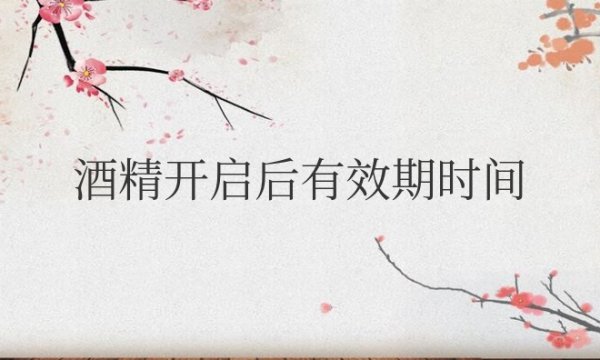 酒精开启后有效期时间